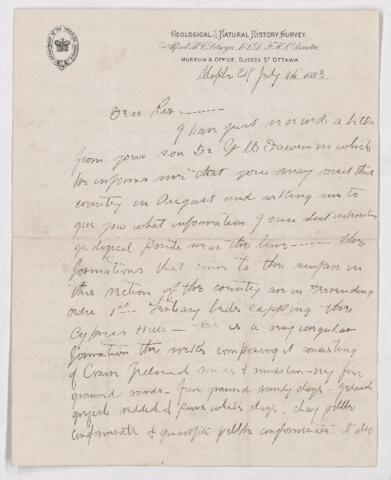 GEOLOGICAL & NATURAL HISTORY SURVEY.
Alfred R. C. Selwyn, L.L.D. F.R.S. Director.
MUSEUM & OFFICE, SUSSEX ST OTTAWA.
Maple Ck July 1883
Dear Sir
I have just received a letter
from your son Dr G M Dawson in which
he informs me that you may visit this
country in August and asking me to
give you what information I can about interesting
geological points near the line the
formations that come to the surface in
this section of the country are in descending
order 1st Tertiary beds capping the
Cypress Hills This is a very irregular
formation the rocks composing it consisting
of Coarse and very fine
ground sands fine ground sandy clays
greyish reddish & pure white clays, clay pebble
conglomerate & quartzite pebble conglomerate. It also